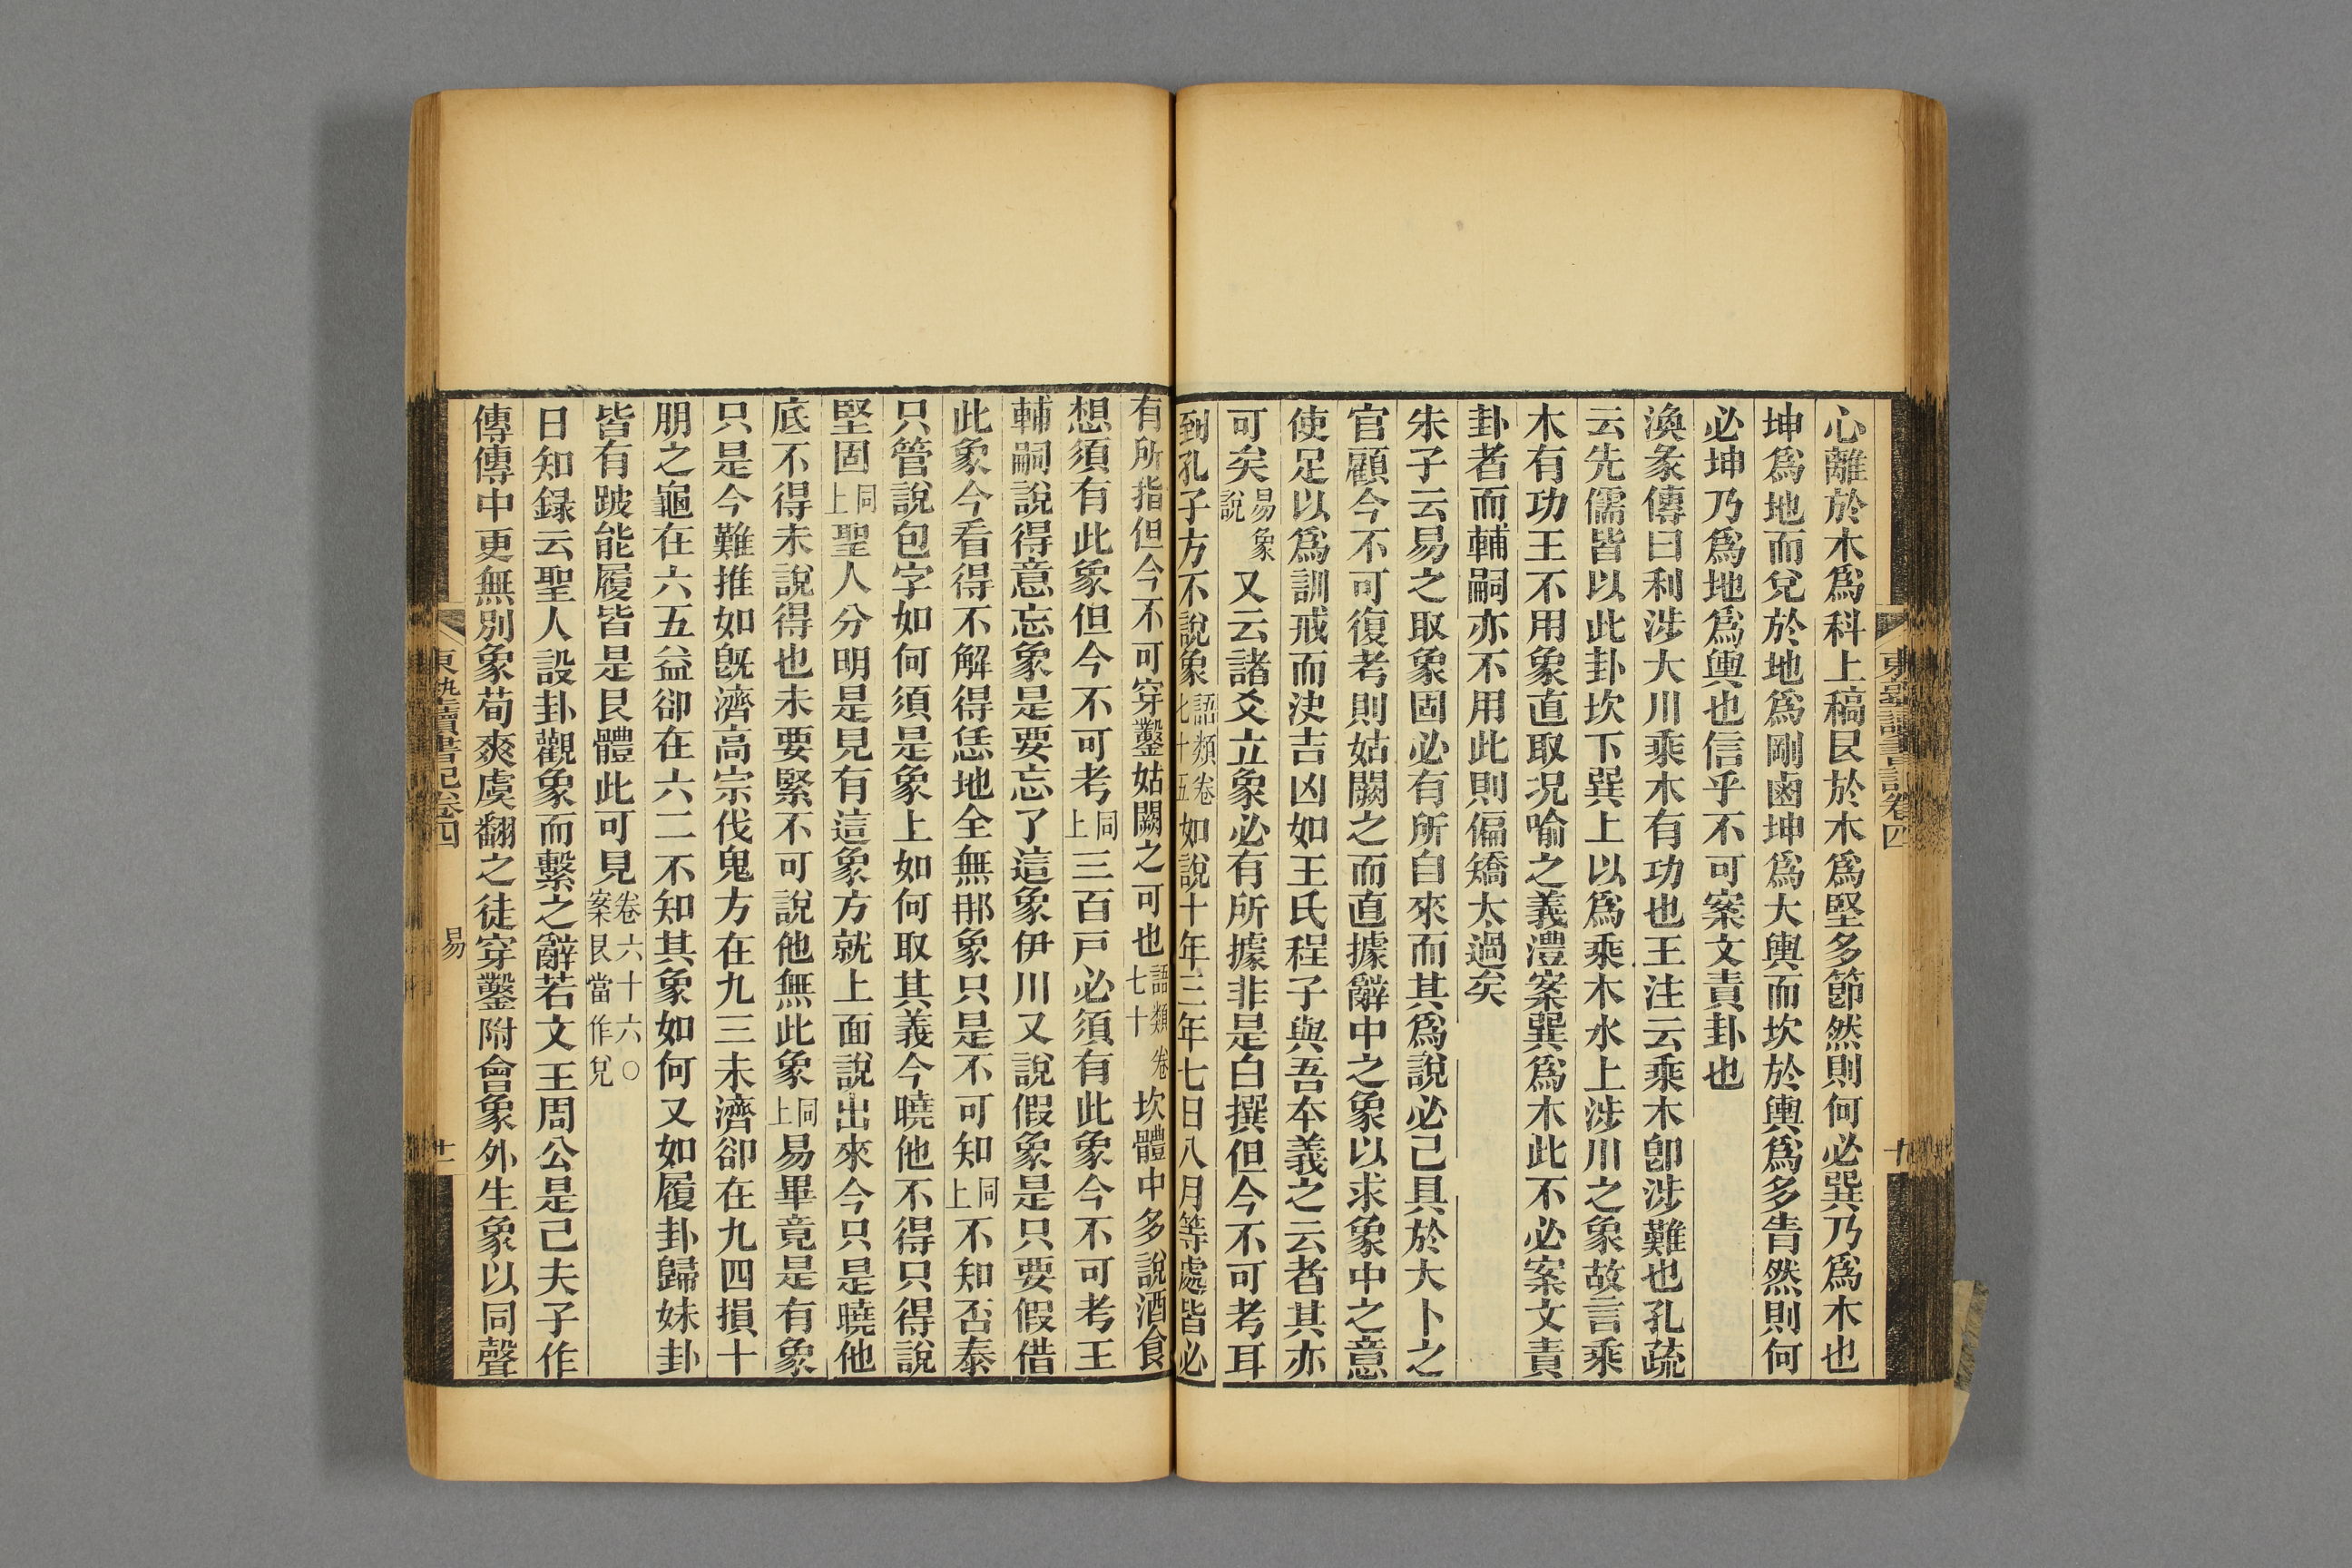 心離於木爲科上稿艮於木爲堅多節然則何必巽乃爲木也
坤爲地而兌於地爲剛鹵坤爲大輿而坎於輿爲多眚然則何
必坤乃爲地爲輿也信乎不可案文責卦也
渙彖傳曰利涉大川乘木有功也王注云乘木卽涉難也孔疏
云先儒皆以此卦坎下巽上以爲乘木水上涉川之象故言乘
木有功王不用象直取况喻之義澧案巽爲木此不必案文責
卦者而輔嗣亦不用此則偏矯太過矣
朱子云易之取象固必有所自來而其爲說必已具於大卜之
官顧今不可復考則姑闕之而直據辭中之象以求象中之意
使足以爲訓戒而決吉凶如王氏程子與吾本義之云者其亦
可矣易象說又云諸爻立象必有所據非是白撰但今不可考耳
到孔子方不說象語類卷七十五如說十年三年七日八月等處皆必
有所指但今不可穿鑿姑闕之可也語類卷七十坎體中多說酒食
想須有此象但今不可考同上三百戸必須有此象今不可考王
輔嗣說得意忘象是要忘了這象伊川又說假象是只要假借
此象今看得不解得恁地全無那象只是不可知同上不知否泰
只管說包字如何須是象上如何取其義今曉他不得只得說
堅固同上聖人分明是見有這象方就上面說出來今只是曉他
底不得未說得也未要緊不可說他無此象同上易畢竟是有象
只是今難推如旣濟高宗伐鬼方在九三未濟卻在九四損十
朋之龜在六五益卻在六二不知其象如何又如履卦歸妹卦
皆有跛能履皆是艮體此可見卷六十六○案艮當作兌
日知録云聖人設卦觀象而繫之辭若文王周公是已夫子作
傳傳中更無別象荀爽虞翻之徒穿鑿附會象外生象以同聲
東塾讀書記卷四
易
十一
東塾讀書記卷四
十